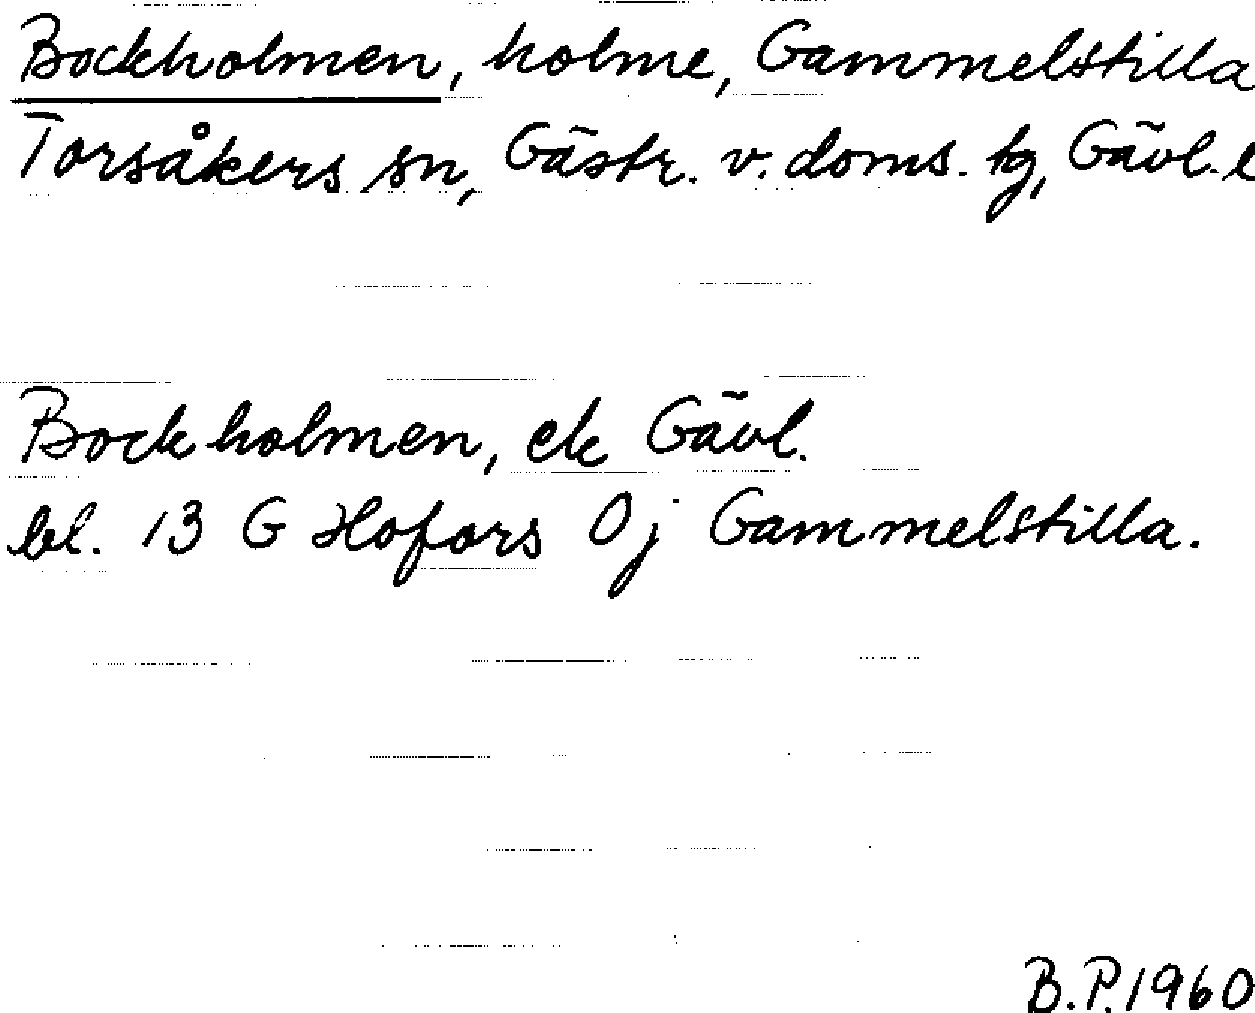 Bockholmen, holme, Gammelstilla
Torsåkers sn, Gästr. v. doms. tg, Gävl. l
Bockholmen, ek Gävl.
bl. 13 G Hofors 0j Gammelstilla.
B.P. 1960